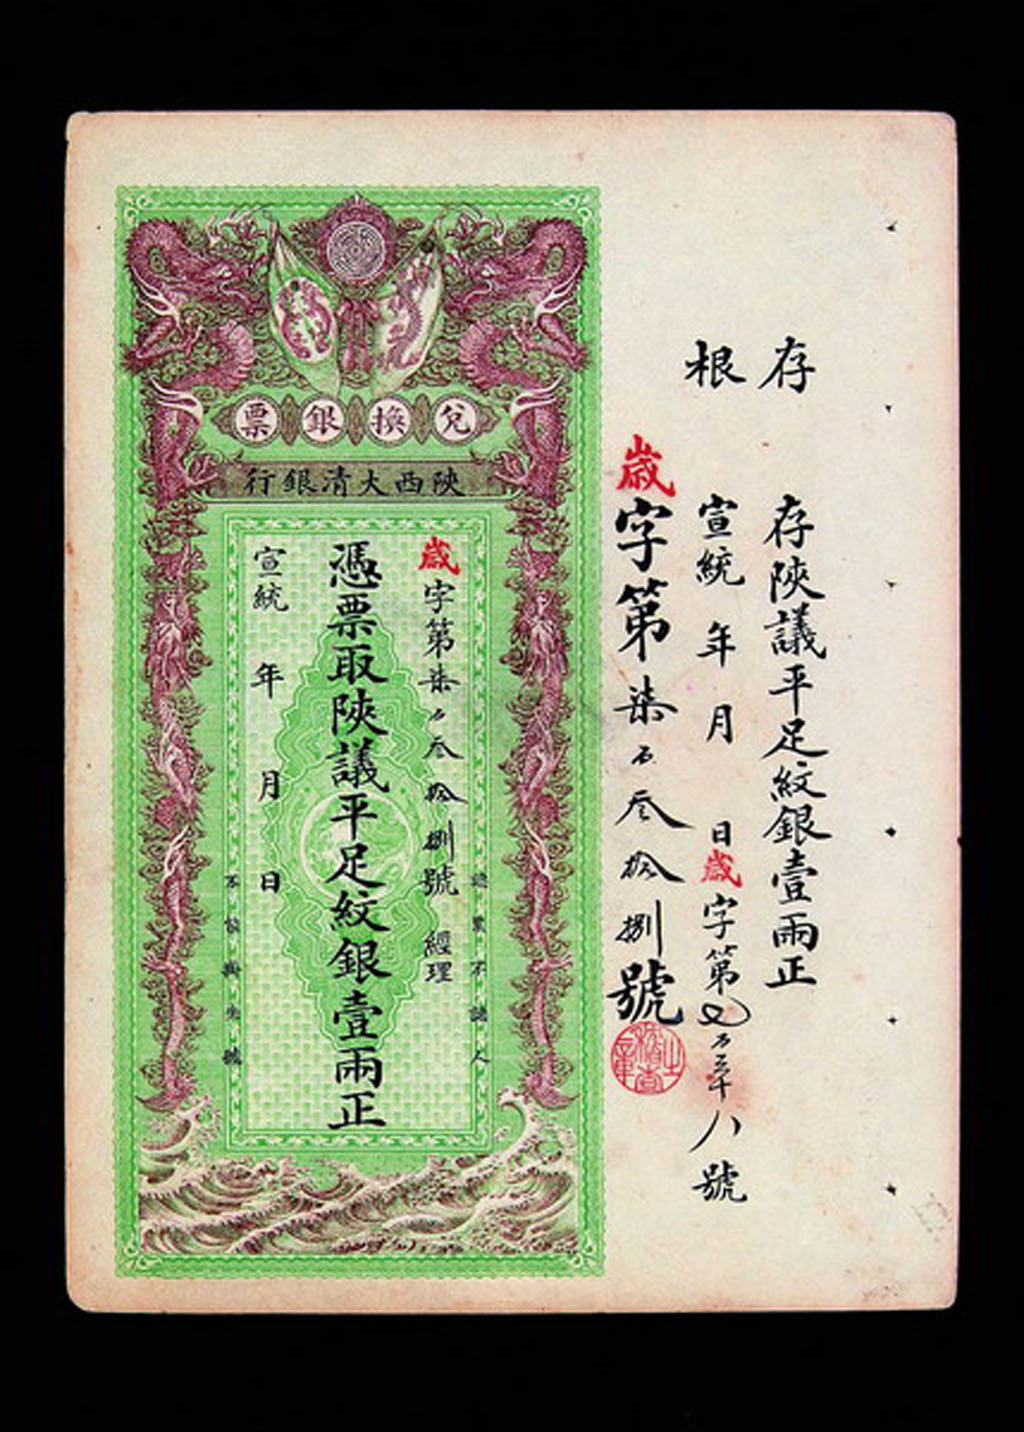 兌換銀票
陝西大清銀行
歲字第柒百叁拾捌號 經理
憑票取陝議平足紋銀壹兩正
宣統 年 月 日
認票不認人
不掛失號
存根
存陝議平足紋銀壹兩正
宣統 年 月 日歲字第七百三十八號
歲字第柒百叁拾捌號